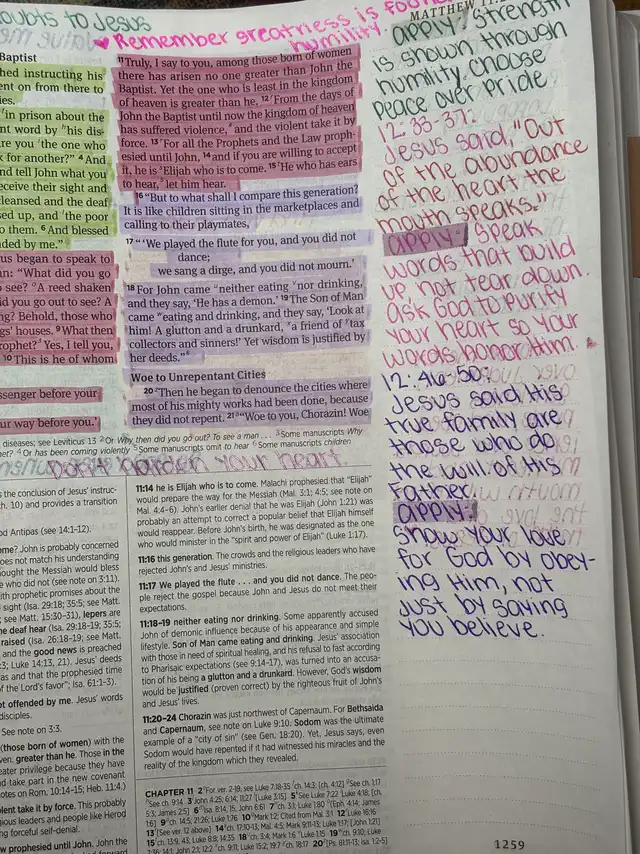 oubts to Jesus
♥ Remember greatness is foun
humility.
MATTHEW 11:
Baptist
hed instructing his
ent on from there to
ies.
in prison about the
nt word by his dis-
re you the one who
k for another?” 4 And
nd tell John what you
eceive their sight and
cleansed and the deaf
sed up, and the poor
o them. 6 And blessed
ded by me.”
us began to speak to
n: “What did you go
o see? A reed shaken
id you go out to see? A
ng? Behold, those who
gs’ houses. 9 What then
rophet? Yes, I tell you,
10 This is he of whom
ssenger before your
ur way before you.’
11 Truly, I say to you, among those born of women
there has arisen no one greater than John the
Baptist. Yet the one who is least in the kingdom
of heaven is greater than he. 12 From the days of
John the Baptist until now the kingdom of heaven
has suffered violence, and the violent take it by
force. 13 For all the Prophets and the Law proph-
esied until John, 14 and if you are willing to accept
it, he is Elijah who is to come. 15 He who has ears
to hear, let him hear.
16 “But to what shall I compare this generation?
It is like children sitting in the marketplaces and
calling to their playmates,
17 “‘We played the flute for you, and you did not
dance;
we sang a dirge, and you did not mourn.’
18 For John came neither eating nor drinking,
and they say, ‘He has a demon.’ 19 The Son of Man
came eating and drinking, and they say, ‘Look at
him! A glutton and a drunkard, a friend of tax
collectors and sinners!’ Yet wisdom is justified by
her deeds.”
Woe to Unrepentant Cities
20 Then he began to denounce the cities where
most of his mighty works had been done, because
they did not repent. 21 “Woe to you, Chorazin! Woe
diseases; see Leviticus 13 2 Or Why then did you go out? To see a man . . . 3 Some manuscripts Why
het? 4 Or has been coming violently 5 Some manuscripts omit to hear 6 Some manuscripts children
Don't harden your heart.
s the conclusion of Jesus’ instruc-
h. 10) and provides a transition
od Antipas (see 14:1–12).
ome? John is probably concerned
oes not match his understanding
hought the Messiah would bless
e who did not (see note on 3:11).
ith prophetic promises about the
sight (Isa. 29:18; 35:5; see Matt.
; see Matt. 15:30–31), lepers are
he deaf hear (Isa. 29:18–19; 35:5;
raised (Isa. 26:18–19; see Matt.
and the good news is preached
:3; Luke 14:13, 21). Jesus’ deeds
as and that the prophesied time
of the Lord’s favor”; Isa. 61:1–3).
ot offended by me. Jesus’ words
disciples.
See note on 3:3.
(those born of women) with the
ven: greater than he. Those in the
eater privilege because they have
nd take part in the new covenant
otes on Rom. 10:14–15; Heb. 11:4.)
olent take it by force. This probably
igious leaders and people like Herod
ng forceful self-denial.
w prophesied until John. John the
11:14 he is Elijah who is to come. Malachi prophesied that “Elijah”
would prepare the way for the Messiah (Mal. 3:1; 4:5; see note on
Mal. 4:4–6). John’s earlier denial that he was Elijah (John 1:21) was
probably an attempt to correct a popular belief that Elijah himself
would reappear. Before John’s birth, he was designated as the one
who would minister in the “spirit and power of Elijah” (Luke 1:17).
11:16 this generation. The crowds and the religious leaders who have
rejected John’s and Jesus’ ministries.
11:17 We played the flute . . . and you did not dance. The peo-
ple reject the gospel because John and Jesus do not meet their
expectations.
11:18–19 neither eating nor drinking. Some apparently accused
John of demonic influence because of his appearance and simple
lifestyle. Son of Man came eating and drinking. Jesus’ association
with those in need of spiritual healing, and his refusal to fast according
to Pharisaic expectations (see 9:14–17), was turned into an accusa-
tion of his being a glutton and a drunkard. However, God’s wisdom
would be justified (proven correct) by the righteous fruit of John’s
and Jesus’ lives.
11:20–24 Chorazin was just northwest of Capernaum. For Bethsaida
and Capernaum, see note on Luke 9:10. Sodom was the ultimate
example of a “city of sin” (see Gen. 18:20). Yet, Jesus says, even
Sodom would have repented if it had witnessed his miracles and the
reality of the kingdom which they revealed.
CHAPTER 11
apply: strength
is shown through
humility. Choose
peace over pride
12:33-37:
Jesus said, "Out
of the abundance
of the heart the
mouth speaks."
apply: Speak
words that build
up, not tear down.
ask God to purify
your heart so your
words honor Him.
12:46-50:
Jesus said His
true family are
those who do
the will of His
Father.
apply:
Show your love
for God by obey-
ing Him, not
just by saying
you believe.
1259